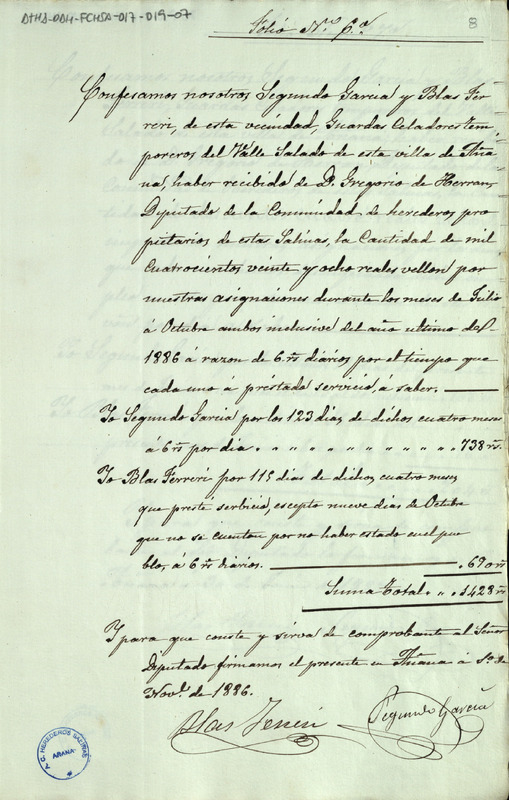 ATHA-DDH-FCHSA-017-019-07
8
Folio Nº 6º
Confesamos nosotros Segundo Garcia y Blas Fer-
reri, de esta vecindad, Guardas Celadores tem-
poreros del Valle Salado de esta villa de Aña-
na, haber recibido de D. Gregorio de Herran,
Diputado de la Comunidad de herederos pro
pietarios de estas Salinas, la Cantidad de mil
Cuatrocientos veinte y ocho reales vellon por
nuestras asignaciones durante los meses de Julio
á Octubre ambos inclusive del año ultimo de
1886 á razon de 6 rs diarios por el tiempo que
cada uno á préstado servicio, á saber.
Yo Segundo Garcia por los 123 dias de dichos cuatro meses
á 6 rs por dia " " " " " " " " 738 rs
Yo Blas Ferreri por 115 dias de dichos cuatro meses
que presté serbicio, escepto nueve dias de Octubre
que no se cuentan por no haber estado en el pue
blo, á 6 rs diarios. 690 rs
Suma total " " 1428 rs
Y para que conste y sirva de comprobante al Señor
Diputado firmamos el presente en Añana á 1º de
Novbe de 1886.
Blas Ferreri
Segundo Garcia
C. HEREDEROS SALINAS
AÑANA